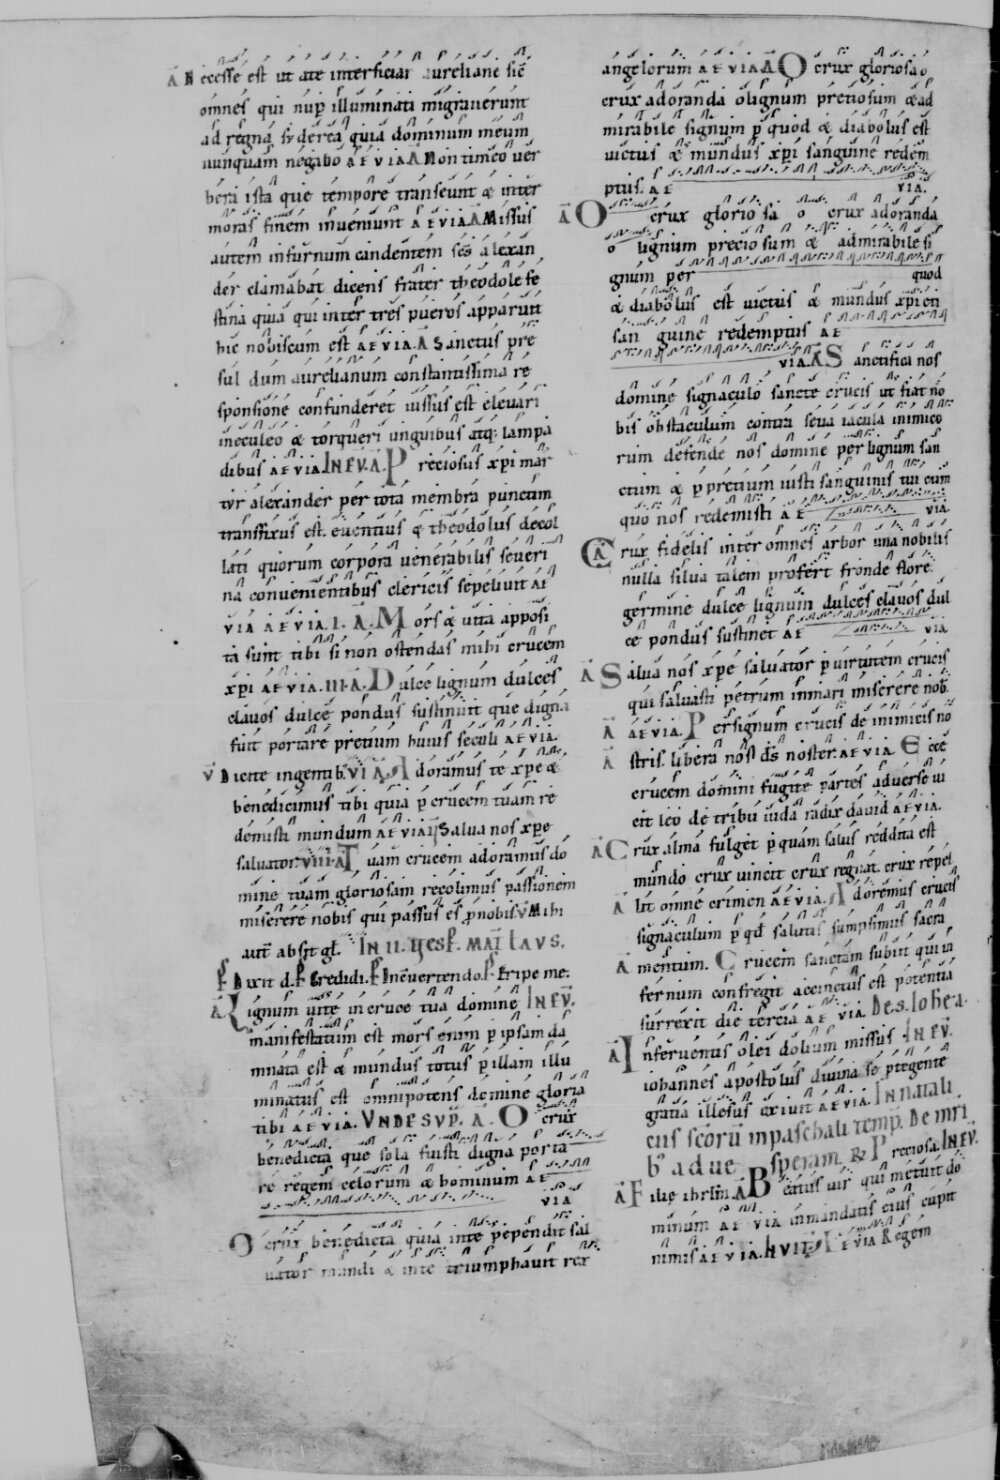 A Necesse est ut a te interficiar aureliane sic
omnes qui nup illuminati migraverunt
ad regna siderea quia dominum meum
nunquam negabo AEVIA. A Non timeo ver
bera ista que tempore transeunt & inter
moras finem inveniunt AEVIA. A Missus
autem in furnum candentem scs alexan
der clamabat dicens frater theodole fe
stina quia qui inter tres pueros apparuit
hic nobiscum est AEVIA. A Sanctus pre
sul dum aurelianum constantissima re
sponsione confunderet iussus est elevari
in eculeo & torqueri unguibus atq; lampa
dibus AEVIA. IN EV. A. Preciosus xpi mar
tyr alexander per tota membra punctim
transfixus est. eventius & theodolus decol
lati quorum corpora venerabilis severi
na convenientibus clericis sepelivit AE
VIA AEVIA. I. A. Mors & vita apposi
ta sunt tibi si non ostendas mihi crucem
xpi AEVIA. III. A. Dulce lignum dulces
clavos dulce pondus sustinuit que digna
fuit portare pretium huius seculi AEVIA.
V Dicite in gentib. VI A. Adoramus te xpe &
benedicimus tibi quia p crucem tuam re
demisti mundum AEVIA. Salva nos xpe
salvator. VIII. A Tuam crucem adoramus do
mine tuam gloriosam recolimus passionem
miserere nobis qui passus es p nobis. V Mihi
aut absit gl. IN II. Vesp. MAT LAUS.
P Dixit d. P Credidi. P In convertendo. P Eripe me.
A Lignum vite in cruce tua domine IN EV.
manifestatum est mors enim p ipsam da
mnata est & mundus totus p illam illu
minatus est omnipotens domine gloria
tibi AEVIA. UNDE SUP. A. O crux
benedicta que sola fuisti digna porta
re regem celorum & dominum AE
VIA
O crux benedicta quia in te pependit sal
vator mundi & in te triumphavit rex
angelorum AEVIA. A O crux gloriosa o
crux adoranda o lignum preciosum & ad
mirabile signum p quod & diabolus est
victus & mundus xpi sanguine redem
ptus. AE VIA.
A O crux gloriosa o crux adoranda
o lignum preciosum & admirabile si
gnum per quod
& diabolus est victus & mundus xpi
sanguine redemptus AE
VIA. A Sanctifica nos
domine signaculo sancte crucis ut fiat no
bis obstaculum contra seva iacula inimico
rum defende nos domine per lignum san
ctum & p pretium iusti sanguinis tui cum
quo nos redemisti AE VIA.
A Crux fidelis inter omnes arbor una nobilis
nulla silva talem profert fronde flore
germine dulce lignum dulces clavos dul
ce pondus sustinet AE VIA.
A Salva nos xpe salvator p virtutem crucis
qui salvasti petrum in mari miserere nob.
A AEVIA. Per signum crucis de inimicis no
A stris libera nos ds noster. AEVIA. Ecce
crucem domini fugite partes adverse vi
cit leo de tribu iuda radix david AEVIA.
A Crux alma fulget p quam salus reddita est
mundo crux vincit crux regnat. crux repel
A lit omne crimen AEVIA. Adoremus crucis
signaculum p qd salutis sumpsimus sacra
A mentum. Crucem sanctam subiit qui in
fernum confregit accinctus est potentia
surrexit die tercia AEVIA. De S. Iohea.
A In ferventis olei dolium missus IN EV.
iohannes apostolus divina se ptegente
gratia illesus exivit AEVIA. In natali
eius scorum in paschali temp. De mri
b' ad ve speram. Preciosa. IN EV.
A Filie ihrlm. A Beatus vir qui metuit do
minum AEVIA in mandatis eius cupit
nimis AEVIA. AEVIA Regem